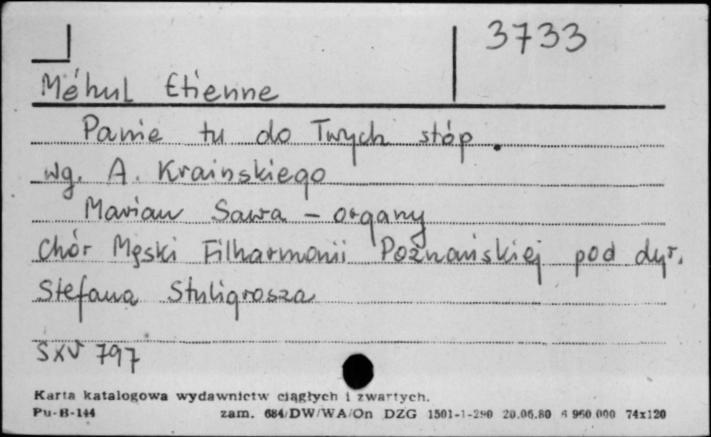 3733
Méhul Etienne
Panie tu do Twych stóp.
wg. A. Krainskiego
Marian Sawa - organy
Chór Męski Filharmonii Poznańskiej pod dyr.
Stefana Stuligrosza
SXV 797
Karta katalogowa wydawnictw ciągłych i zwartych.
Pu-B-144 zam. 684/DW/WA/On DZG 1501-1-290 20.06.80 6 960 000 74x120